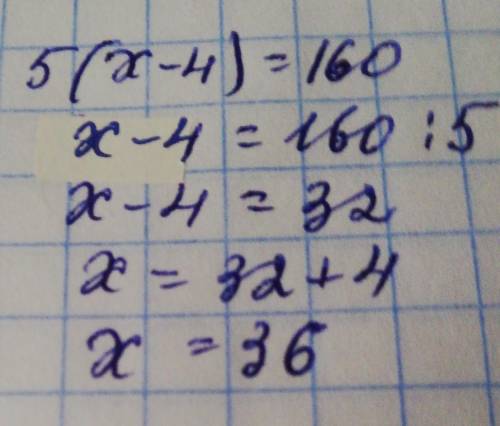 5(x-4)=160
x-4=160:5
x-4=32
x=32+4
x=36